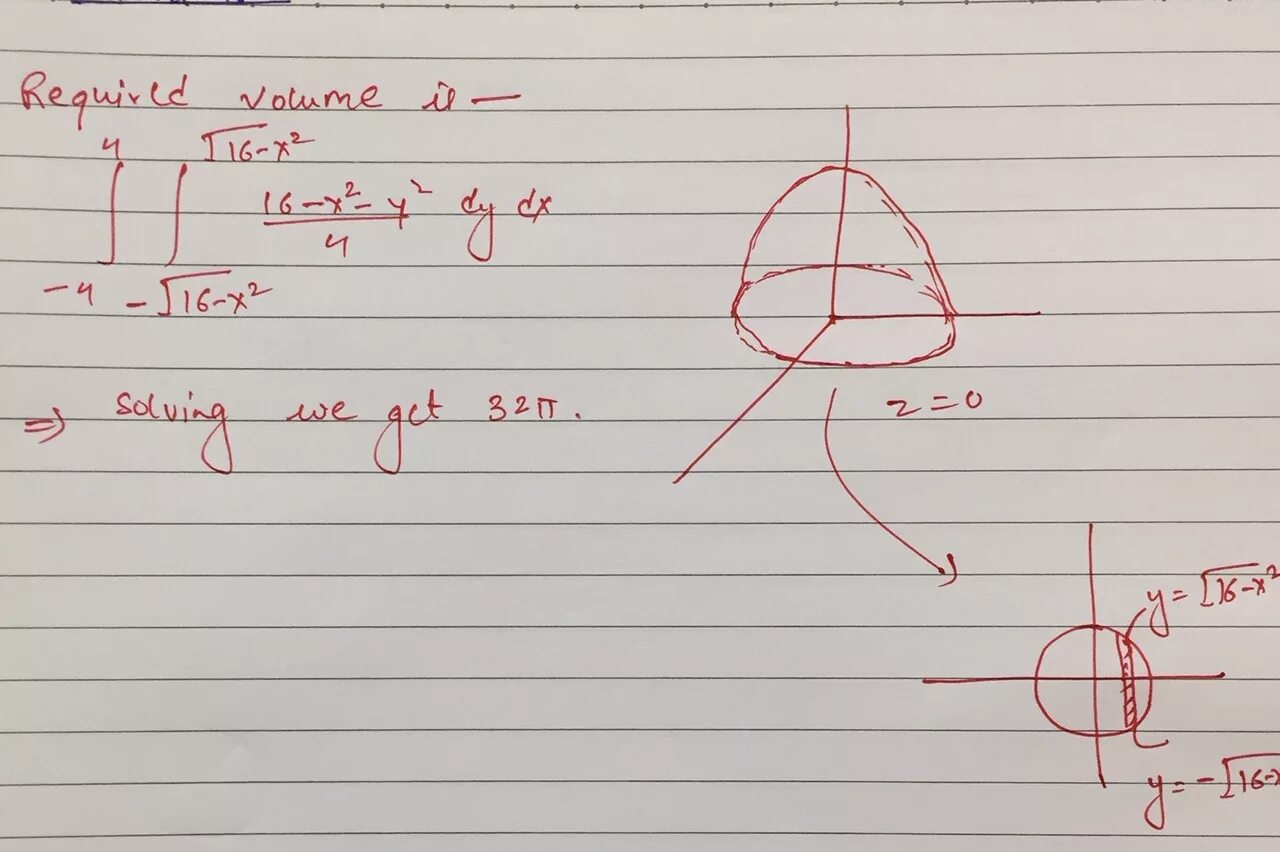 Required volume is —
4 √16-x²
∫ ∫ 16-x²-y² / 4 dy dx
-4 -√16-x²
⇒ solving we get 32π.
z=0
y=√16-x²
y=-√16-x